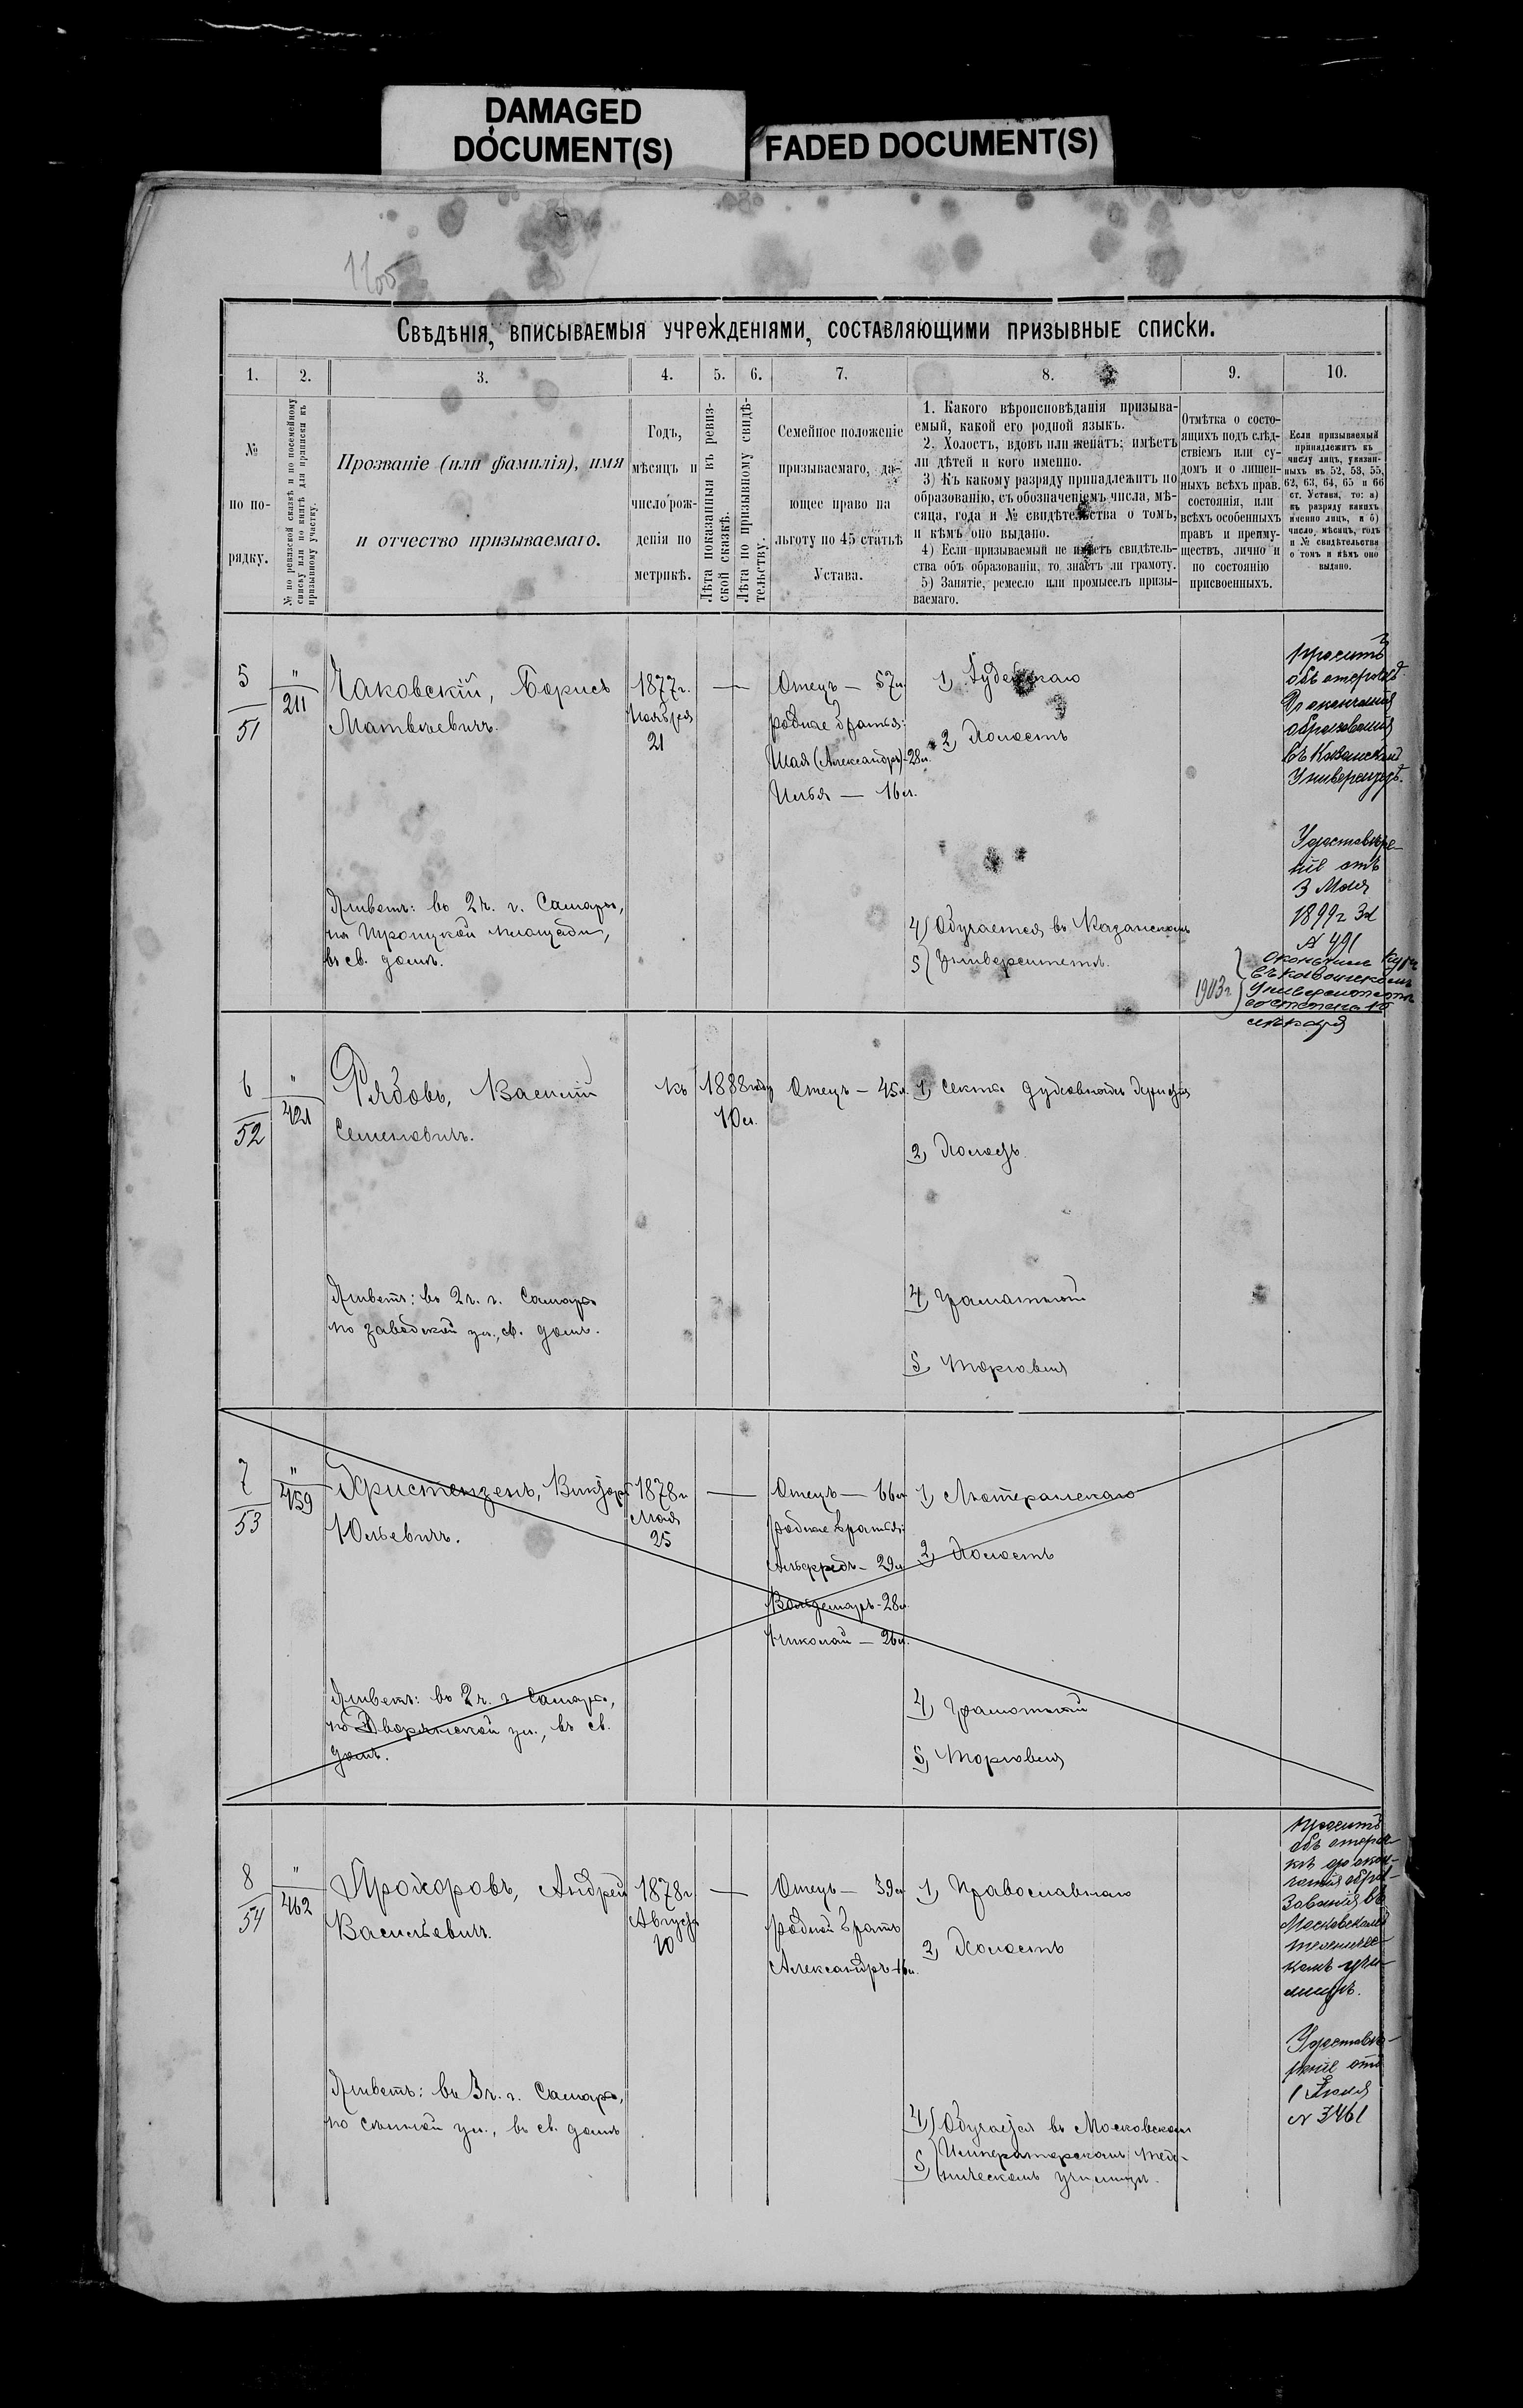 DAMAGED
DOCUMENT(S)
FADED DOCUMENT(S)
Свѣдѣнія, вписываемыя учрежденіями, составляющими призывные списки.
1. 2. 3. 4. 5. 6. 7. 8. 9. 10.
№
по по-
рядку.
№ по ревизской сказкѣ и по посемейному
списку или по книгѣ для приписки къ
призывному участку.
Прозваніе (или фамилія), имя
и отчество призываемаго.
Годъ,
мѣсяцъ и
число рож-
денія по
метрикѣ.
Лѣта показанныя въ ревиз-
ской сказкѣ.
Лѣта по призывному свидѣ-
тельству.
Семейное положеніе
призываемаго, да-
ющее право на
льготу по 45 статьѣ
Устава.
1. Какого вѣроисповѣданія призыва-
емый, какой его родной языкъ.
2. Холостъ, вдовъ или женатъ; имѣетъ
ли дѣтей и кого именно.
3) Къ какому разряду принадлежитъ по
образованію, съ обозначеніемъ числа, мѣ-
сяца, года и № свидѣтельства о томъ,
и кѣмъ оно выдано.
4) Если призываемый не имѣетъ свидѣтель-
ства объ образованіи, то знаетъ ли грамоту.
5) Занятіе, ремесло или промыселъ призы-
ваемаго.
Отмѣтка о состо-
ящихъ подъ слѣд-
ствіемъ или су-
домъ и о лишен-
ныхъ всѣхъ прав.
состоянія, или
всѣхъ особенныхъ
правъ и преиму-
ществъ, лично и
по состоянію
присвоенныхъ.
Если призываемый
принадлежитъ къ
числу лицъ, указан-
ныхъ въ 52, 53, 55,
62, 63, 64, 65 и 66
ст. Устава, то: а)
къ разряду какихъ
именно лицъ, и б)
число, мѣсяцъ, годъ
и № свидѣтельства
о томъ и кѣмъ оно
выдано.
5
51
"
211
Чаковскій, Борисъ
Матвѣевичъ.
1877 г.
Ноября
21
—
Отецъ — 57 л.
родные братья:
Шая (Александръ) - 28 л.
Илья — 16 л.
1) Іудейскаго
2) Холостъ
Живетъ: въ 2 ч. г. Самары,
на Троицкой площади,
въ св. домѣ.
4) Обучается въ Казанскомъ
5) Университетѣ.
Проситъ
объ отсрочкѣ
до окончанія
образованія
въ Казанском
Университетѣ.
Удостовѣре-
ніе отъ
3 Мая
1899 г. за
№ 491
1903 г.
Окончилъ курсъ
въ Казанскомъ
Университетѣ
со степенью
лѣкаря
6
52
"
421
Рябовъ, Василій
Семеновичъ.
къ 1888 году
10 л.
Отецъ — 45 л.
1) Секты духовныхъ христіанъ
2) Холостъ
Живетъ: въ 2 ч. г. Самары
по заводской ул., св. домъ.
4) Грамотный
5) Торговля
7
53
"
459
Христензенъ, Викторъ
Юльевичъ.
1878 г.
Мая
25
—
Отецъ — 66 л.
родные братья:
Альфредъ - 29 л.
Вольдемаръ - 28 л.
Николай — 26 л.
1) Лютеранскаго
2) Холостъ
Живетъ: въ 2 ч. г. Самары,
по Дворянской ул., въ св.
домѣ.
4) Грамотный
5) Торговля
8
54
"
462
Прохоровъ, Андрей
Васильевичъ.
1878 г.
Августа
10
—
Отецъ — 39 л.
родной братъ
Александръ - 16 л.
1) Православнаго
2) Холостъ
Живетъ: въ 3 ч. г. Самары,
по Сѣнной ул., въ св. домѣ
4) Обучается въ Московскомъ
5) Императорскомъ Техн-
ическомъ училищѣ.
Проситъ
объ отсроч-
кѣ до окон-
чанія обра-
зованія въ
Московскомъ
техничес-
комъ учи-
лищѣ.
Удостовѣ-
реніе отъ
1 Іюля
№ 3461